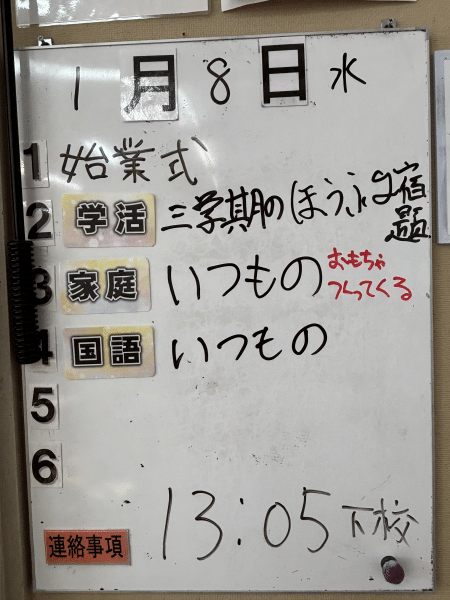 1月8日 水
1 始業式
2 学活 三学期のほうふ 宿題
3 家庭 いつもの おもちゃ
つくってくる
4 国語 いつもの
5
6
連絡事項 13:05 下校